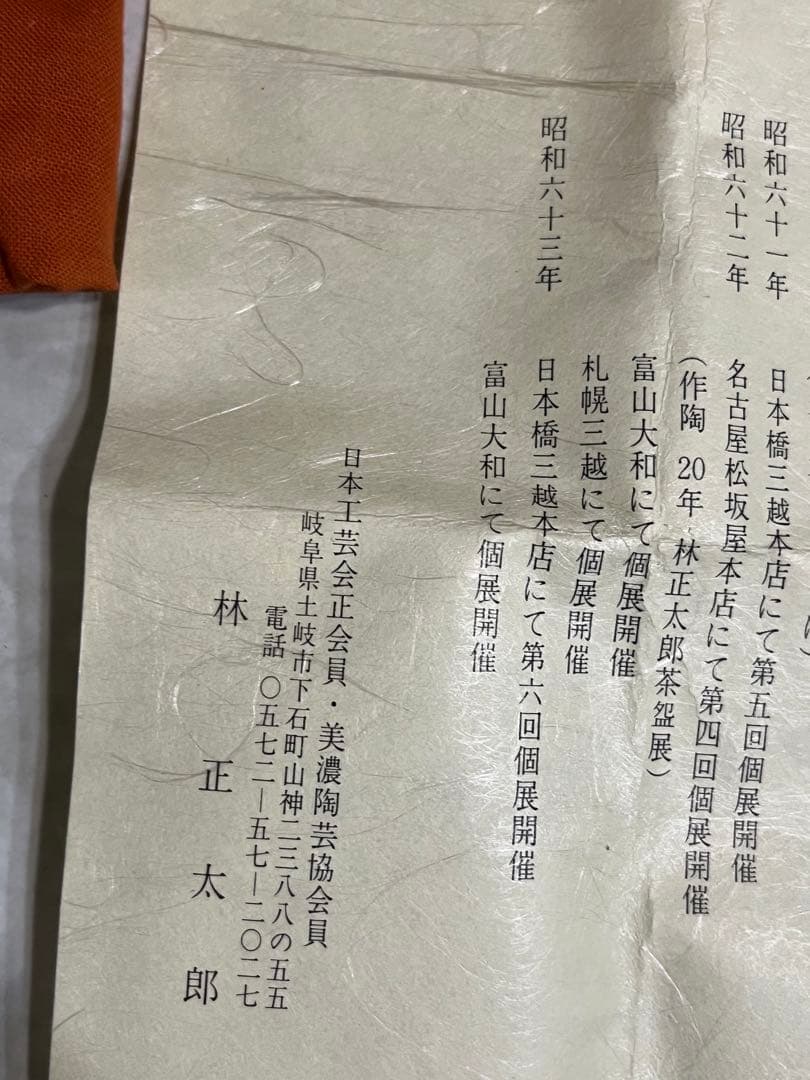 昭和六十一年 日本橋三越本店にて第五回個展開催
昭和六十二年 名古屋松坂屋本店にて第四回個展開催
(作陶 20年 林正太郎茶盌展)
富山大和にて個展開催
札幌三越にて個展開催
昭和六十三年 日本橋三越本店にて第六回個展開催
富山大和にて個展開催
日本工芸会正会員・美濃陶芸協会員
岐阜県土岐市下石町山神二三八八の五五
電話 〇五七二―五七―二〇二七
林正太郎